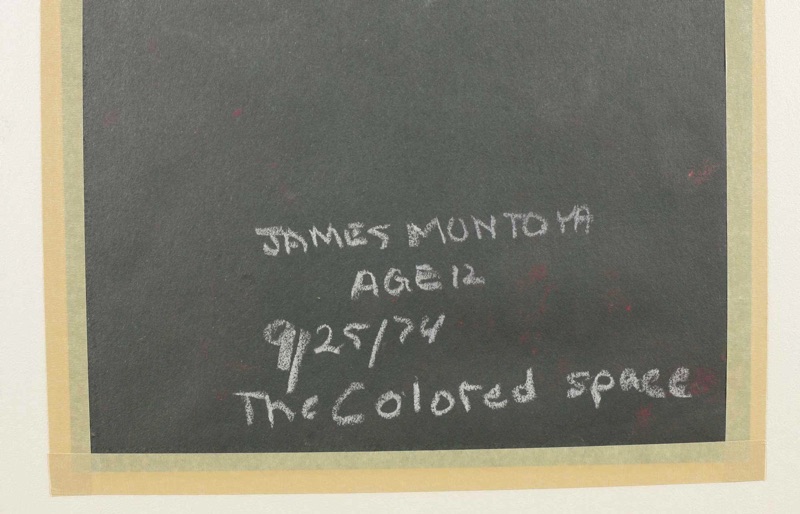 JAMES MONTOYA
AGE 12
9/25/74
The Colored space